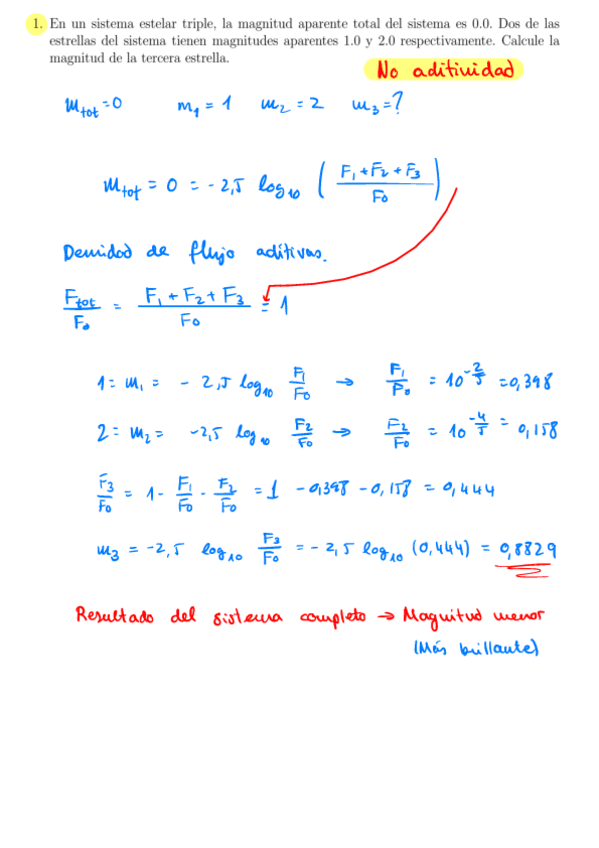 1. En un sistema estelar triple, la magnitud aparente total del sistema es 0.0. Dos de las
estrellas del sistema tienen magnitudes aparentes 1.0 y 2.0 respectivamente. Calcule la
magnitud de la tercera estrella.
No aditividad
m_tot = 0 m_1 = 1 m_2 = 2 m_3 = ?
m_tot = 0 = -2,5 log_10 ( (F_1 + F_2 + F_3) / F_0 )
Densidad de flujo aditivas.
F_tot / F_0 = (F_1 + F_2 + F_3) / F_0 = 1
1 = m_1 = -2,5 log_10 F_1/F_0 → F_1/F_0 = 10^(-2/5) = 0,398
2 = m_2 = -2,5 log_10 F_2/F_0 → F_2/F_0 = 10^(-4/5) = 0,158
F_3/F_0 = 1 - F_1/F_0 - F_2/F_0 = 1 - 0,398 - 0,158 = 0,444
m_3 = -2,5 log_10 F_3/F_0 = -2,5 log_10 (0,444) = 0,8829
Resultado del sistema completo → Magnitud menor
(Más brillante)